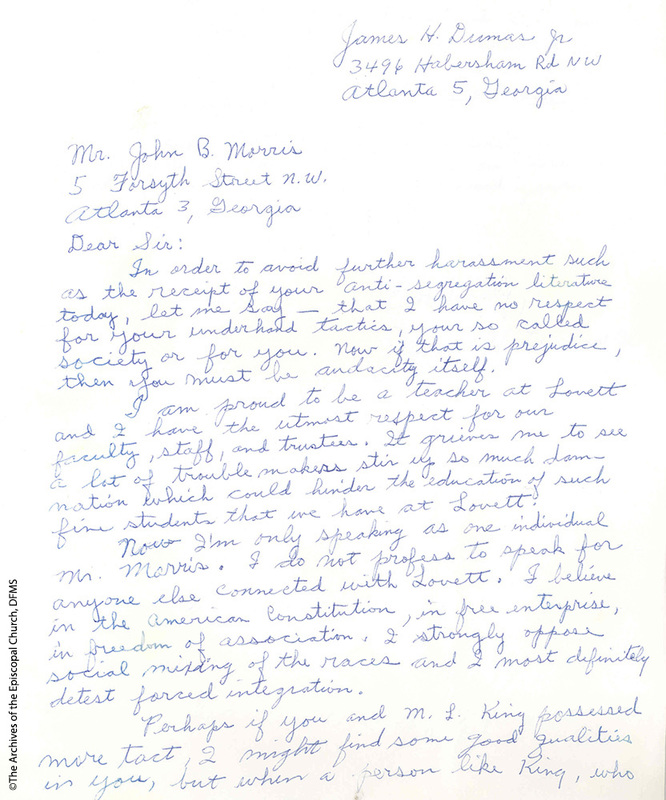 James H. Dumas Jr
3496 Habersham Rd NW
Atlanta 5, Georgia
Mr. John B. Morris
5 Forsyth Street N.W.
Atlanta 3, Georgia
Dear Sir:
In order to avoid further harassment such
as the receipt of your anti-segregation literature
today, let me say — that I have no respect
for your underhand tactics, your so called
society or for you. Now if that is prejudice,
then you must be audacity itself.
I am proud to be a teacher at Lovett
and I have the utmost respect for our
faculty, staff, and trustees. It grieves me to see
a lot of trouble makers stir up so much dam-
nation which could hinder the education of such
fine students that we have at Lovett.
Now I'm only speaking as one individual
Mr. Morris. I do not profess to speak for
anyone else connected with Lovett. I believe
in the American Constitution, in free enterprise,
in freedom of association. I strongly oppose
social mixing of the races and I most definitely
detest forced integration.
Perhaps if you and M. L. King possessed
more tact, I might find some good qualities
in you, but when a person like King, who
©The Archives of the Episcopal Church, DFMS